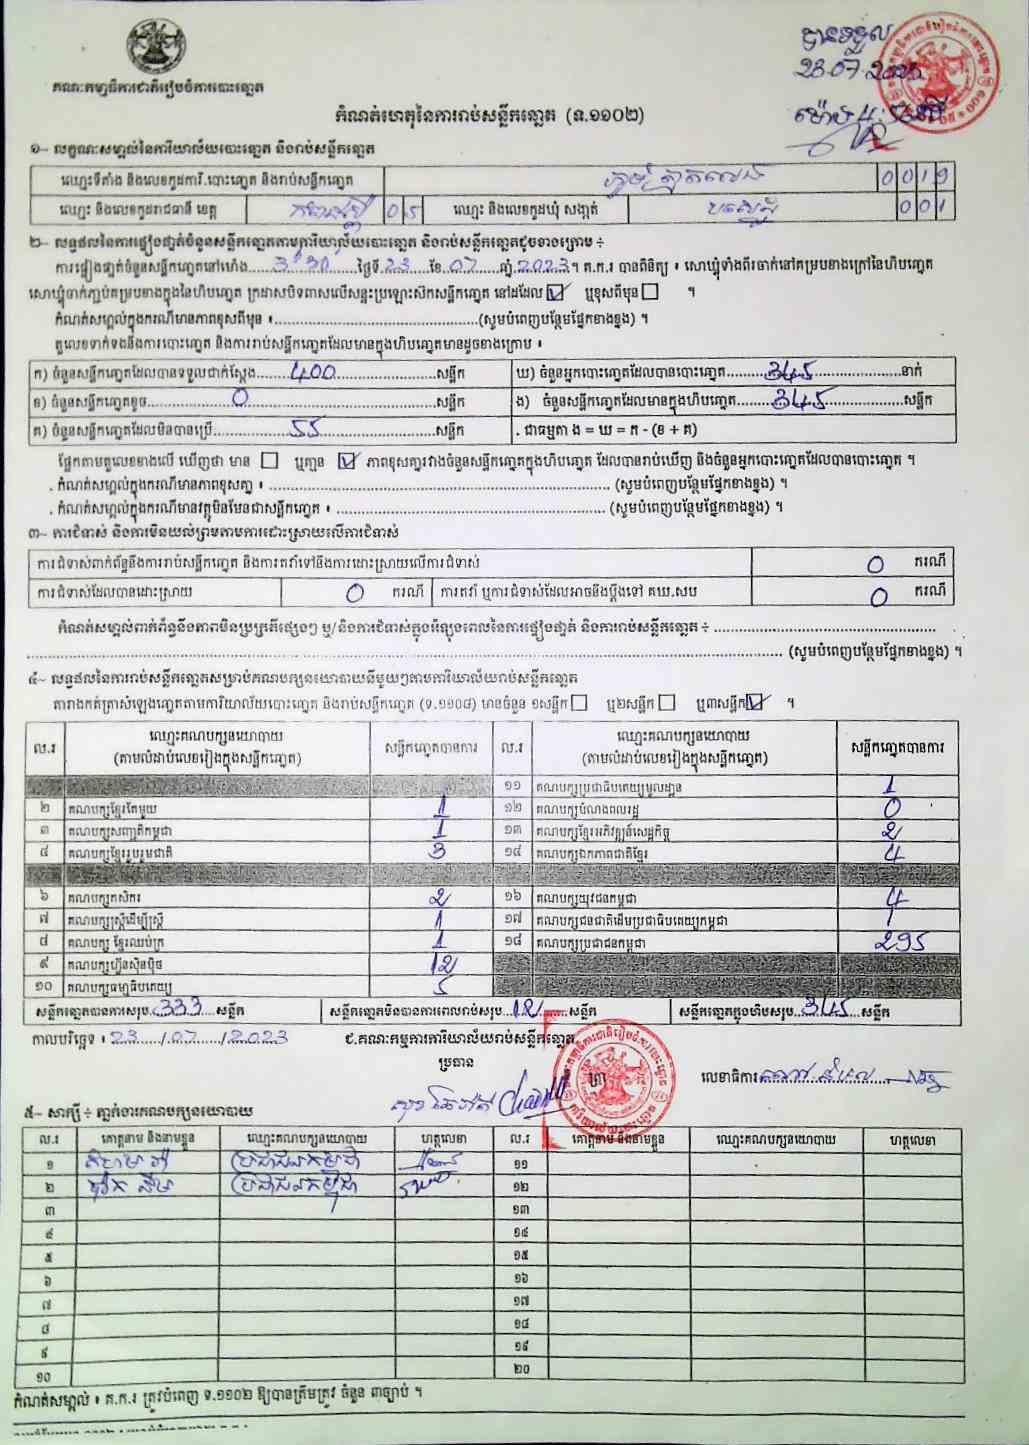 បានទទួល
23.07.2023
ម៉ោង 4:
គណៈកម្មាធិការជាតិរៀបចំការបោះឆ្នោត
កំណត់ហេតុនៃការរាប់សន្លឹកឆ្នោត (ទ.១១០២)
១~ លក្ខណៈសម្គាល់នៃការិយាល័យបោះឆ្នោត និងរាប់សន្លឹកឆ្នោត
ឈ្មោះទីតាំង និងលេខកូដការិ.បោះឆ្នោត និងរាប់សន្លឹកឆ្នោត 0019
ឈ្មោះ និងលេខកូដរាជធានី ខេត្ត 05 ឈ្មោះ និងលេខកូដឃុំ សង្កាត់ 001
២~ លទ្ធផលនៃការផ្ទៀងផ្ទាត់ចំនួនសន្លឹកឆ្នោតតាមការិយាល័យបោះឆ្នោត និងរាប់សន្លឹកឆ្នោតដូចខាងក្រោម ÷
ការផ្ទៀងផ្ទាត់ចំនួនសន្លឹកឆ្នោតនៅម៉ោង 3 30 ថ្ងៃទី 23 ខែ 07 ឆ្នាំ 2023 ។ គ.ក.រ បានពិនិត្យ ៖ សោឃ្លុំទាំងពីរចាក់នៅគម្របខាងក្រៅនៃហិបឆ្នោត
សោឃ្លុំចាក់ភ្ជាប់គម្របខាងក្នុងនៃហិបឆ្នោត ក្រដាសបិទពាសលើសន្ទះប្រឡោះស៊កសន្លឹកឆ្នោត នៅដដែល ☑ ឬខុសពីមុន ☐ ។
កំណត់សម្គាល់ក្នុងករណីមានភាពខុសពីមុន ៖ (សូមបំពេញបន្ថែមផ្នែកខាងខ្នង) ។
តួលេខទាក់ទងនឹងការបោះឆ្នោត និងការរាប់សន្លឹកឆ្នោតដែលមានក្នុងហិបឆ្នោតមានដូចខាងក្រោម ៖
ក) ចំនួនសន្លឹកឆ្នោតដែលបានទទួលជាក់ស្តែង 400 សន្លឹក ឃ) ចំនួនអ្នកបោះឆ្នោតដែលបានបោះឆ្នោត 345 នាក់
ខ) ចំនួនសន្លឹកឆ្នោតខូច 0 សន្លឹក ង) ចំនួនសន្លឹកឆ្នោតដែលមានក្នុងហិបឆ្នោត 345 សន្លឹក
គ) ចំនួនសន្លឹកឆ្នោតដែលមិនបានប្រើ 55 សន្លឹក . ជាធម្មតា ង = ឃ = ក - (ខ + គ)
ផ្អែកតាមតួលេខខាងលើ ឃើញថា មាន ☐ ឬគ្មាន ☑ ភាពខុសគ្នារវាងចំនួនសន្លឹកឆ្នោតក្នុងហិបឆ្នោត ដែលបានរាប់ឃើញ និងចំនួនអ្នកបោះឆ្នោតដែលបានបោះឆ្នោត ។
. កំណត់សម្គាល់ក្នុងករណីមានភាពខុសគ្នា ៖ (សូមបំពេញបន្ថែមផ្នែកខាងខ្នង) ។
. កំណត់សម្គាល់ក្នុងករណីមានវត្ថុមិនមែនជាសន្លឹកឆ្នោត ៖ (សូមបំពេញបន្ថែមផ្នែកខាងខ្នង) ។
៣~ ការជំទាស់ និងការមិនយល់ព្រមតាមការដោះស្រាយលើការជំទាស់
ការជំទាស់ពាក់ព័ន្ធនឹងការរាប់សន្លឹកឆ្នោត និងការតវ៉ាទៅនឹងការដោះស្រាយលើការជំទាស់ 0 ករណី
ការជំទាស់ដែលបានដោះស្រាយ 0 ករណី ការតវ៉ា ឬការជំទាស់ដែលអាចនឹងប្តឹងទៅ គឃ.សប 0 ករណី
កំណត់សម្គាល់ពាក់ព័ន្ធនឹងភាពមិនប្រក្រតីផ្សេងៗ ឬ/និងការជំទាស់ក្នុងអំឡុងពេលនៃការផ្ទៀងផ្ទាត់ និងការរាប់សន្លឹកឆ្នោត ÷
(សូមបំពេញបន្ថែមផ្នែកខាងខ្នង) ។
៤~ លទ្ធផលនៃការរាប់សន្លឹកឆ្នោតសម្រាប់គណបក្សនយោបាយនីមួយៗតាមការិយាល័យរាប់សន្លឹកឆ្នោត
តារាងកត់ត្រាសំឡេងឆ្នោតតាមការិយាល័យបោះឆ្នោត និងរាប់សន្លឹកឆ្នោត (ទ.១១០៨) មានចំនួន ១សន្លឹក ☐ ឬ២សន្លឹក ☐ ឬ៣សន្លឹក ☑ ។
ល.រ ឈ្មោះគណបក្សនយោបាយ (តាមលំដាប់លេខរៀងក្នុងសន្លឹកឆ្នោត) សន្លឹកឆ្នោតបានការ ល.រ ឈ្មោះគណបក្សនយោបាយ (តាមលំដាប់លេខរៀងក្នុងសន្លឹកឆ្នោត) សន្លឹកឆ្នោតបានការ
១១ គណបក្សប្រជាធិបតេយ្យមូលដ្ឋាន 1
២ គណបក្សខ្មែរតែមួយ 1 ១២ គណបក្សបំណងពលរដ្ឋ 0
៣ គណបក្សសញ្ជាតិកម្ពុជា 1 ១៣ គណបក្សខ្មែរអភិវឌ្ឍន៍សេដ្ឋកិច្ច 2
៤ គណបក្សខ្មែររួបរួមជាតិ 3 ១៤ គណបក្សឯកភាពជាតិខ្មែរ 4
៦ គណបក្សកសិករ 2 ១៦ គណបក្សយុវជនកម្ពុជា 4
៧ គណបក្សស្ត្រីដើម្បីស្ត្រី 1 ១៧ គណបក្សជនជាតិដើមប្រជាធិបតេយ្យកម្ពុជា 1
៨ គណបក្ស ខ្មែរឈប់ក្រ 1 ១៨ គណបក្សប្រជាជនកម្ពុជា 295
៩ គណបក្សហ៊្វុនស៊ិនប៉ិច 12
១០ គណបក្សធម្មាធិបតេយ្យ 5
សន្លឹកឆ្នោតបានការសរុប 333 សន្លឹក សន្លឹកឆ្នោតមិនបានការពេលរាប់សរុប 12 សន្លឹក សន្លឹកឆ្នោតក្នុងហិបសរុប 345 សន្លឹក
កាលបរិច្ឆេទ ៖ 23 /07 /2023 ជ.គណៈកម្មការការិយាល័យរាប់សន្លឹកឆ្នោត
ប្រធាន
លេខាធិការ
៥~ សាក្សី ÷ ភ្នាក់ងារគណបក្សនយោបាយ
ល.រ គោត្តនាម និងនាមខ្លួន ឈ្មោះគណបក្សនយោបាយ ហត្ថលេខា ល.រ គោត្តនាម និងនាមខ្លួន ឈ្មោះគណបក្សនយោបាយ ហត្ថលេខា
១ ប្រជាជនកម្ពុជា ១១
២ ប្រជាជនកម្ពុជា ១២
៣ ១៣
៤ ១៤
៥ ១៥
៦ ១៦
៧ ១៧
៨ ១៨
៩ ១៩
១០ ២០
កំណត់សម្គាល់ ៖ គ.ក.រ ត្រូវបំពេញ ទ.១១០២ ឱ្យបានត្រឹមត្រូវ ចំនួន ៣ច្បាប់ ។